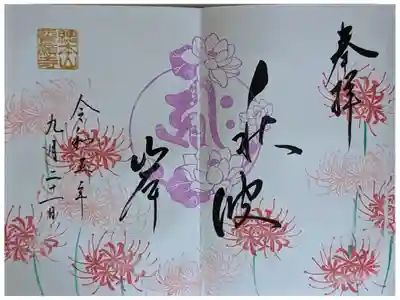 奉拝
秋彼
岸
令和五年
九月二十一日